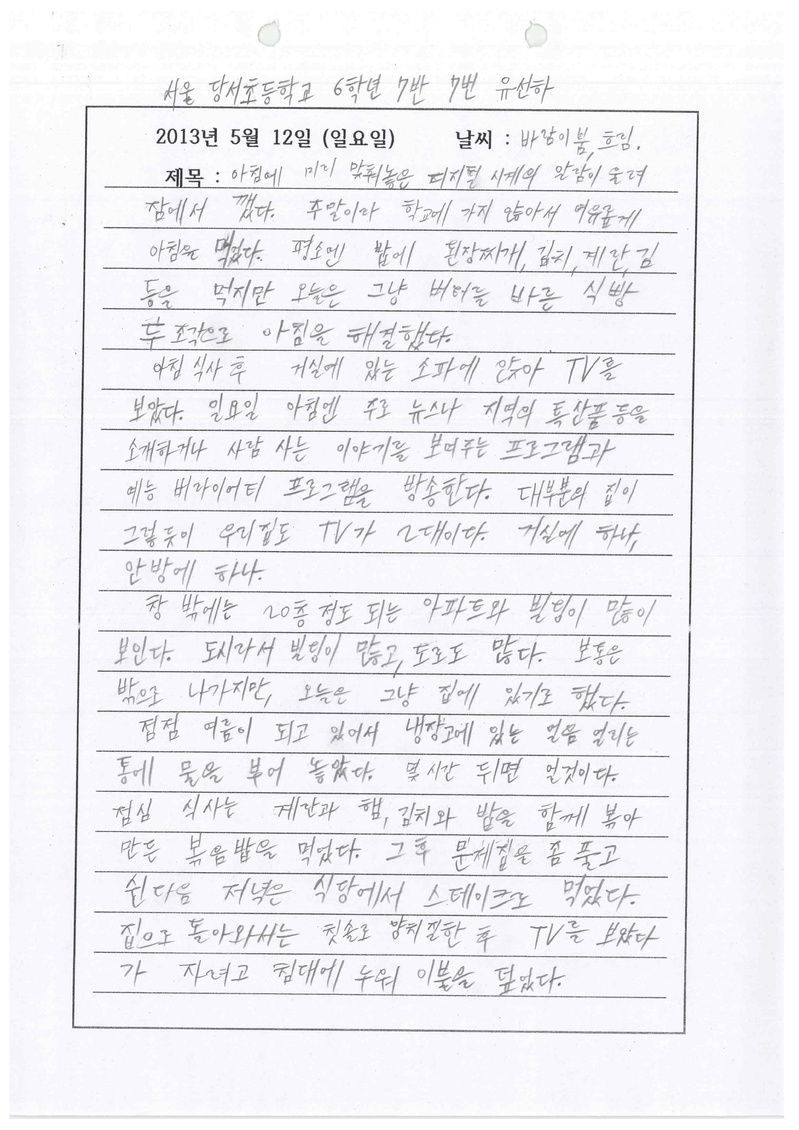 서울 당서초등학교 6학년 7반 7번 유선하
2013년 5월 12일 (일요일) 날씨 : 바람이 붐, 흐림.
제목 : 아침에 미리 맞춰놓은 디지털 시계의 알람이 울려
잠에서 깼다. 주말이라 학교에 가지 않아서 여유롭게
아침을 먹었다. 평소엔 밥에 된장찌개, 김치, 계란, 김
등을 먹지만 오늘은 그냥 버터를 바른 식빵
두 조각으로 아침을 해결했다.
아침 식사 후 거실에 있는 소파에 앉아 TV를
보았다. 일요일 아침엔 주로 뉴스나 지역의 특산품 등을
소개하거나 사람 사는 이야기를 보여주는 프로그램과
예능 버라이어티 프로그램을 방송한다. 대부분의 집이
그렇듯이 우리집도 TV가 2대이다. 거실에 하나,
안방에 하나.
창 밖에는 20층 정도 되는 아파트와 빌딩이 많이
보인다. 도시라서 빌딩이 많고, 도로도 많다. 보통은
밖으로 나가지만, 오늘은 그냥 집에 있기로 했다.
점점 여름이 되고 있어서 냉장고에 있는 얼음 얼리는
통에 물을 부어 놓았다. 몇 시간 뒤면 얼것이다.
점심 식사는 계란과 햄, 김치와 밥을 함께 볶아
만든 볶음밥을 먹었다. 그 후 문제집을 좀 풀고
쉰다음 저녁은 식당에서 스테이크로 먹었다.
집으로 돌아와서는 칫솔로 양치질한 후 TV를 보았다
가 자려고 침대에 누워 이불을 덮었다.